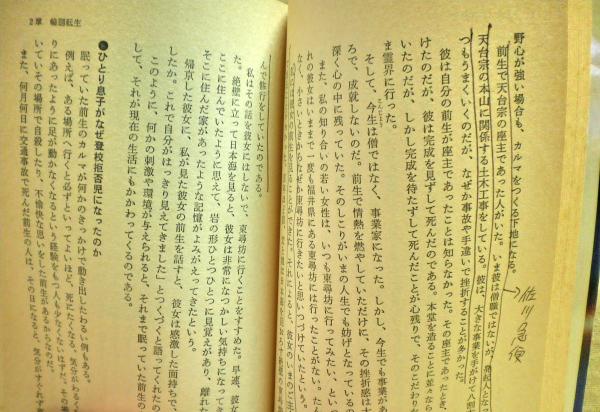 野心が強い場合も、カルマをつくる下地になる。
前生で天台宗の座主であった人がいた。いま彼は僧籍ではないが、発起人となっ
天台宗の本山に関係する土木工事をしている。彼は、大きな事業を手がけて八割
つもうまくいくのだが、なぜか事故や手違いで挫折することが多かった。
彼は自分の前生が座主であったことは知らなかった。その座主であったとき、
けたのだが、彼は完成を見ずして死んだのである。本堂を造ることに並々なら
いたのだが、しかし完成を待たずして死んだことが心残りで、そのこだわりが
ま霊界に行った。
そして、今生は僧ではなく、事業家になった。しかし、今生でも事業があ
ろで、成就しないのだ。前生で情熱を燃やしていただけに、その挫折感は大
深く心の中に残っていた。そのしこりがいまの人生でも妨げとなっているの
また、私の知り合いの若い女性は、いつも東尋坊に行ってみたい、とい
れの彼女はいままで一度も福井県にある東尋坊には行ったことがない。たん
なく、小さいときからなぜか東尋坊に行きたいと思いつづけていたという。
佐川急便
んで修行をしていたのである。
私はその話を彼女にはしないで、東尋坊に行くことをすすめた。早速、彼女
た。絶壁に立って日本海を見ると、彼女は非常になつかしい気持ちになってき
ここに住んでいたように思えて、岩の形ひとつひとつに見覚えがあり、離れた
そこに住んだ家があったような記憶がよみがえってきたという。
帰京した彼女に、私が見た彼女の前生を話すと、彼女は感激した面持ちで、
したか。これで自分がはっきり見えてきました」とつくづくと語ってくれたの
このように、何かの刺激や環境が与えられると、それまで眠っていた前生の
して、それが現在の生活にもかかわってくるのである。
ひとり息子がなぜ登校拒否児になったのか
眠っていた前生のカルマが何かのきっかけで動き出したらる例もある。
例えば、ある場所へ行くと必ずといってよいほど、死にたくなる、気分がわるく
りにあったように足が動かなくなるという経験をもつ人も少なくないはずだ。その場
いていその場所で自殺したり、不愉快な思いをした前生があるからなのだ。
また、何月何日に交通事故で死んだ前生の人は、その日になると、気分がすぐれず
2章 輪廻転生